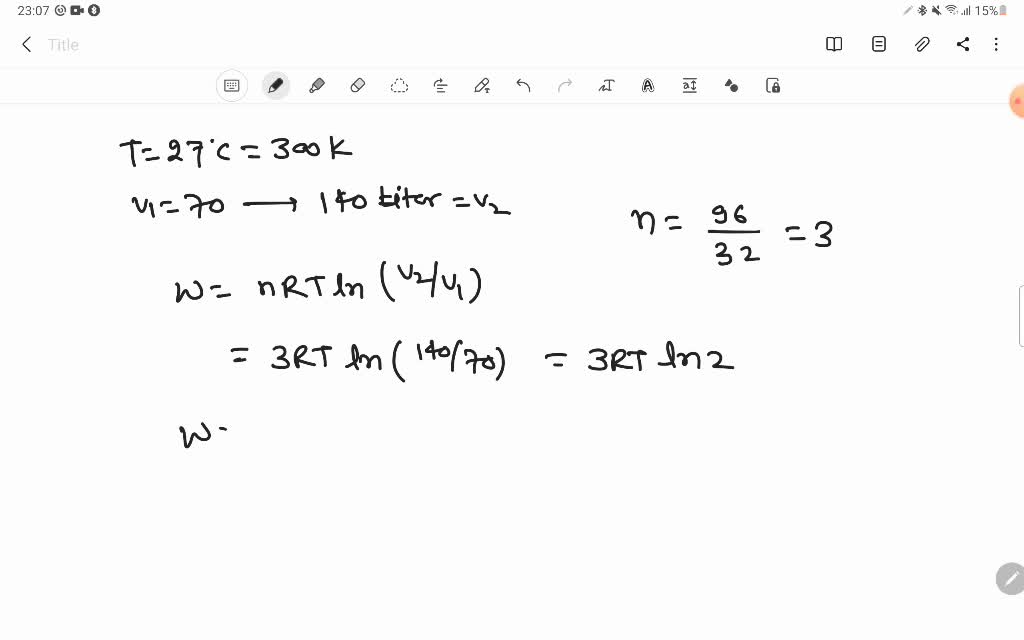 23:07 15%
Title
T = 27°C = 300 K
V1 = 70 → 140 liter = V2
n = 96/32 = 3
W = nRT ln (V2/V1)
= 3RT ln (140/70) = 3RT ln 2
W -